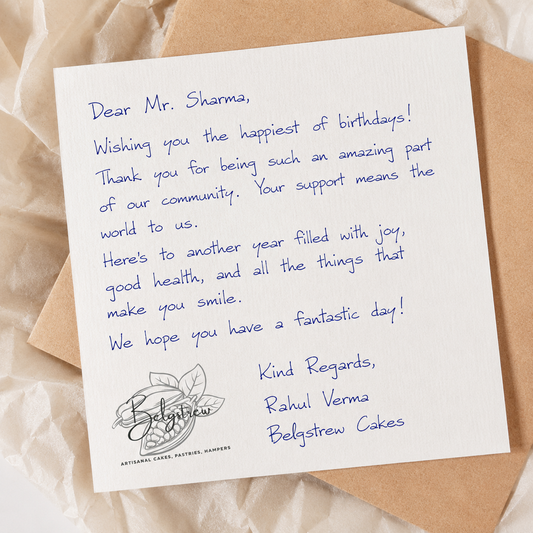 Dear Mr. Sharma,
Wishing you the happiest of birthdays!
Thank you for being such an amazing part
of our community. Your support means the
world to us.
Here's to another year filled with joy,
good health, and all the things that
make you smile.
We hope you have a fantastic day!
Kind Regards,
Rahul Verma
Belgstrew Cakes
Belgstrew
ARTISANAL CAKES, PASTRIES, HAMPERS